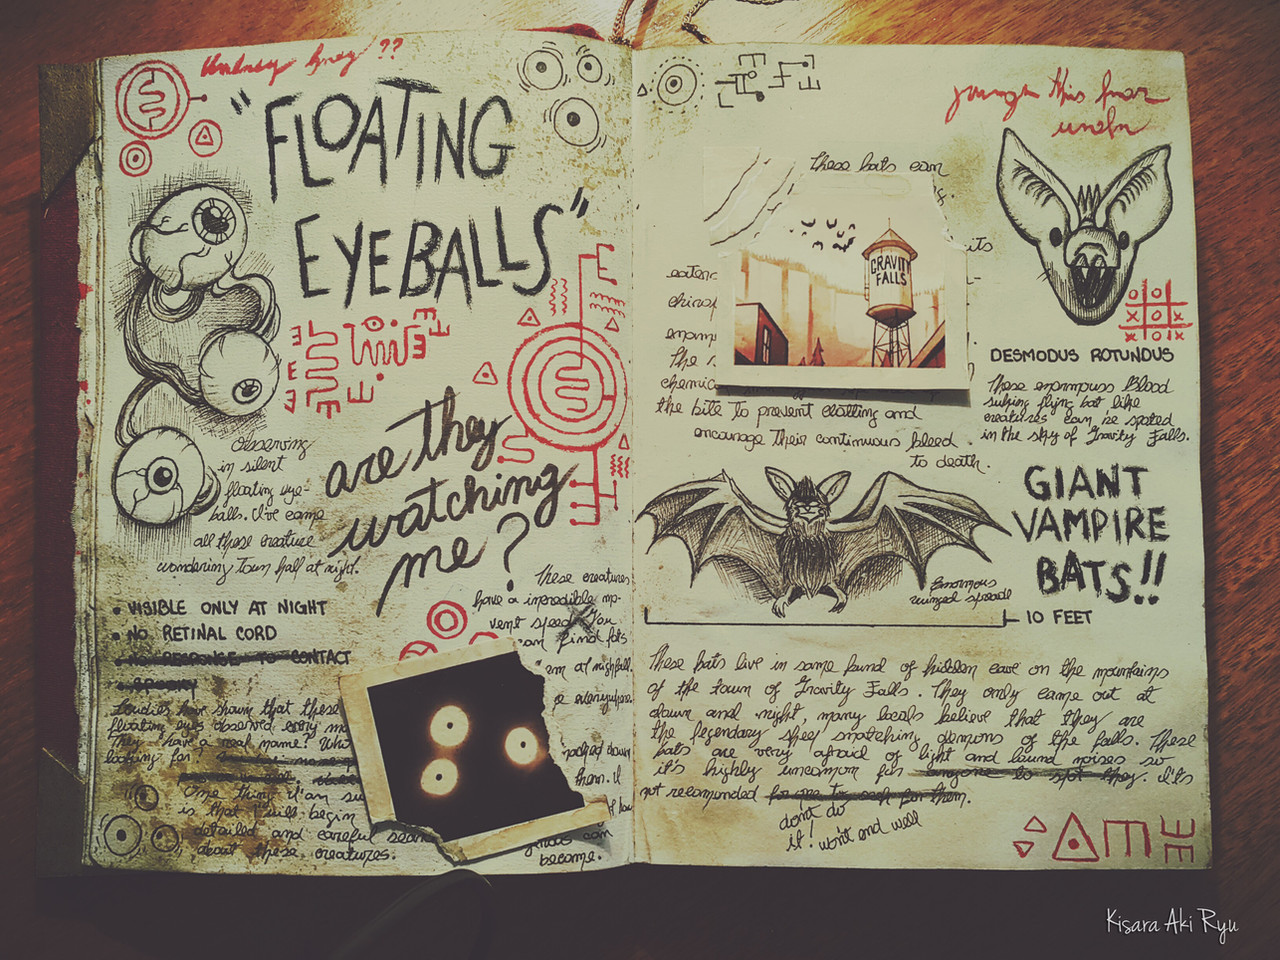 "FLOATING
EYEBALLS"
are they
watching
me?
Observing
in silent
floating eye-
balls. I've came
all these creature
wondering Town hall at night.
• VISIBLE ONLY AT NIGHT
• NO RETINAL CORD
• NO RESPONSE TO CONTACT
• SPOOKY
Loudies have shown that these
floating eyes observed every
They have a real name?
looking for?
One thing I'am su
is that I'll begin
detailed and careful sear
about these creatures.
These creatures
have a incredible mo-
vent speed. You
can find
em at nightfall.
e everywhere.
them. I
can
become.
These bats can
GRAVIT
FALLS
chirop
The
chemic
the bite to prevent clotting and
encourage their continuous bleed
to death.
this
DESMODUS ROTUNDUS
These enormouss Blood
suking flying bat like
creatures can be spoted
in the sky of Gravity Falls.
GIANT
VAMPIRE
BATS!!
Enormous
10 FEET
These bats live in some found of hidden cave on the mountains
of the town of Gravity Falls. They only came out at
dawn and night, many locals believe that they are
the legendary shep snatching demons of the falls. These
bats are very afraid of light and lound noises so
it's highly uncomon for anyone to spot they. It's
not recomonded for me to seck for them.
dont do
it! won't end well
Kisara Aki Ryu